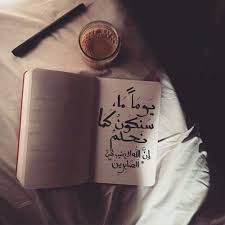 يوماً ما،
سنكون كما
نحلم
إنّ الله لا
الصابرين